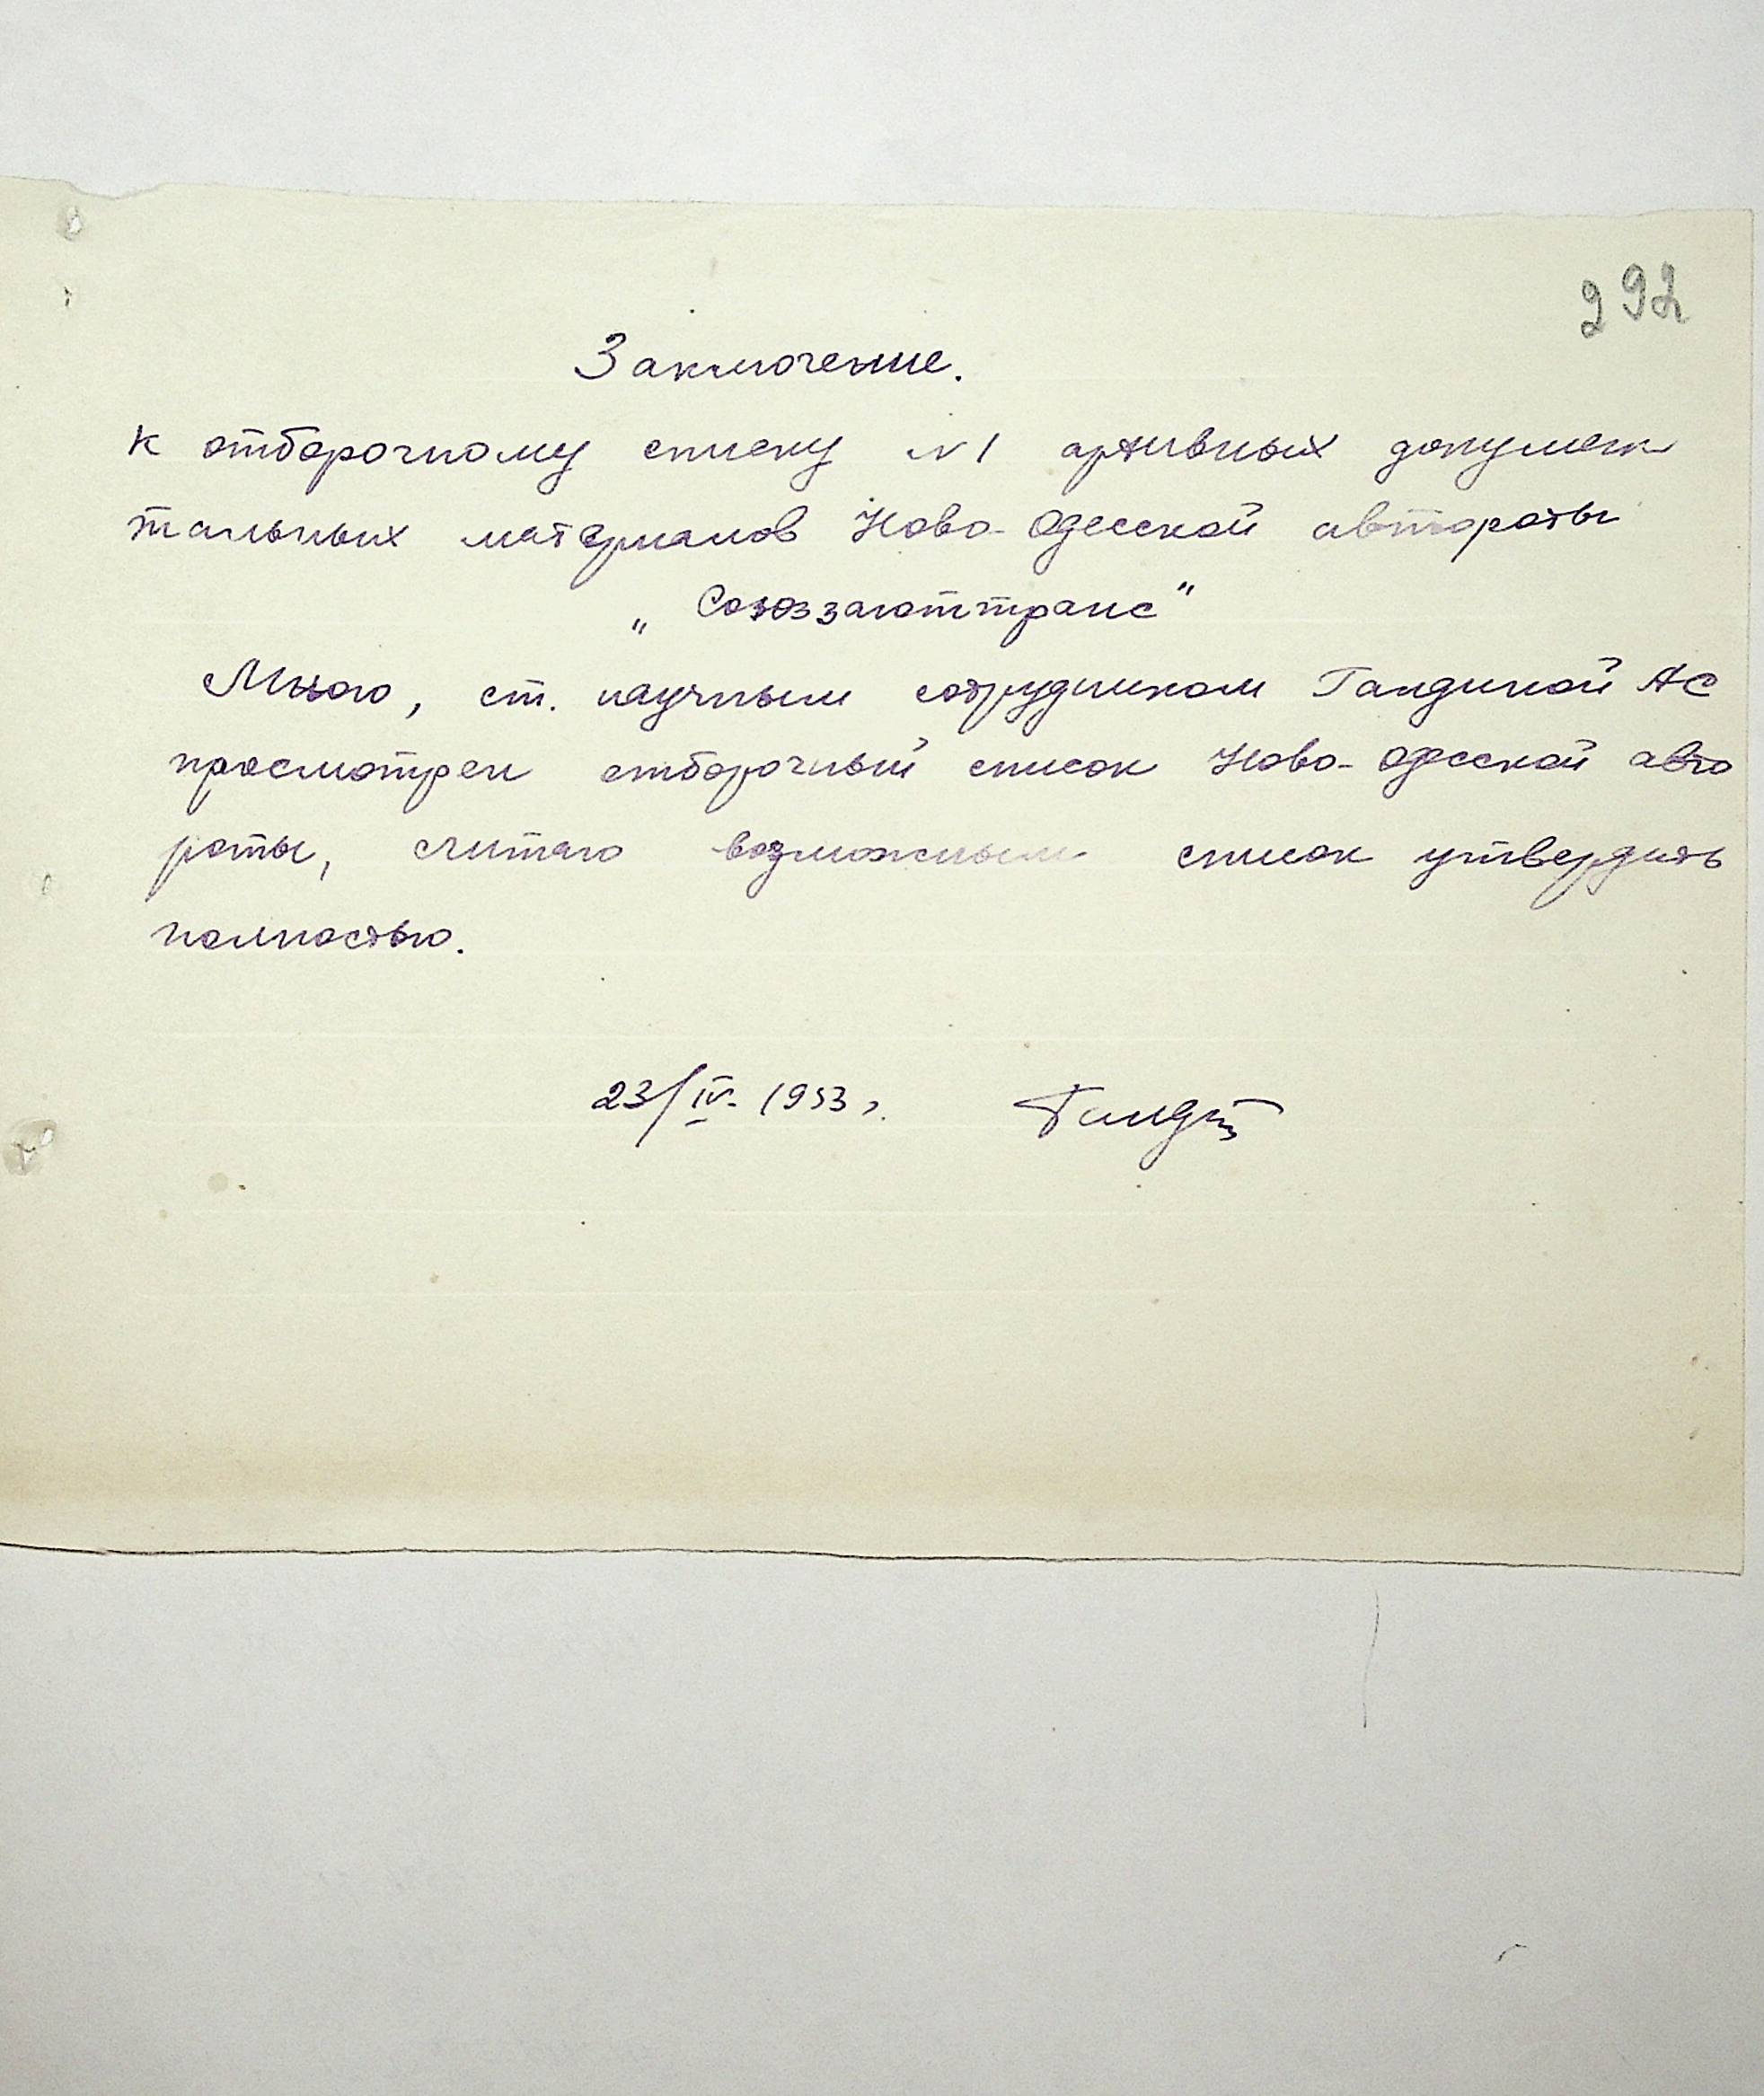 292
Заключение.
к отборочному списку №1 архивных докумен
тальных материалов Ново-Одесской автороты
„Союззаготтранс"
Мною, ст. научным сотрудником Гандиной АС
просмотрен отборочный список Ново-Одесской авто
роты, считаю возможным список утвердить
полностью.
23/IV-1953г.